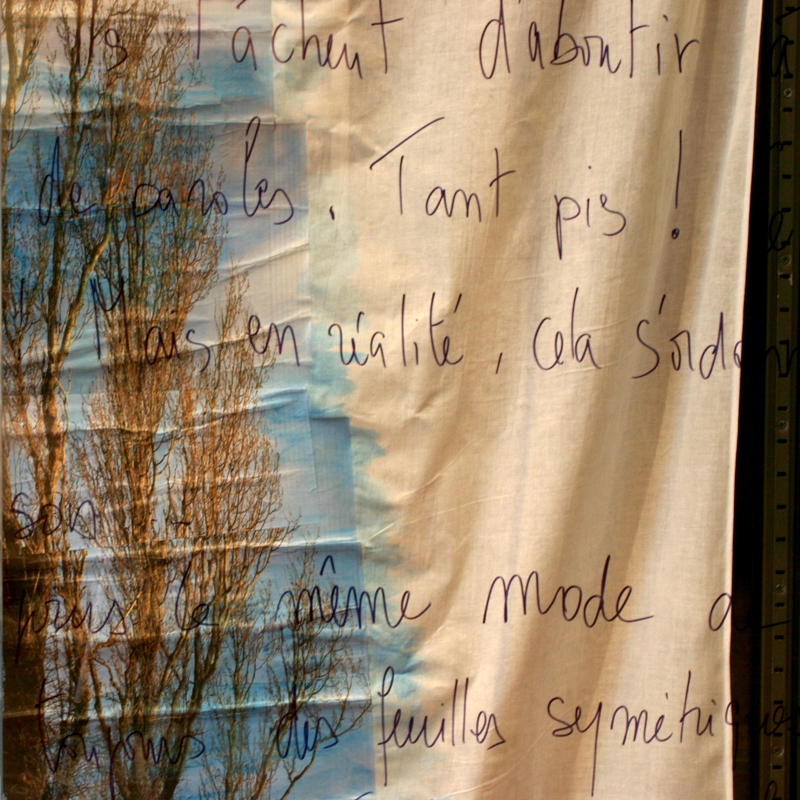 ls tâchent d'aboutir à
de paroles. Tant pis !
Mais en réalité, cela s'ordo
son
jours le même mode d
toujours des feuilles symétriques